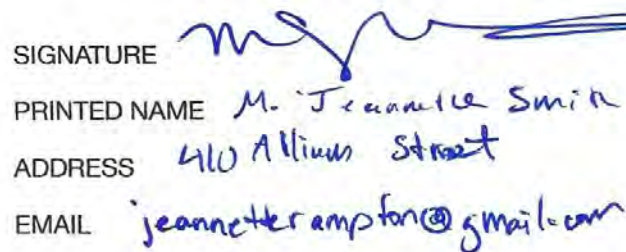 SIGNATURE
PRINTED NAME M. Jeannette Smith
ADDRESS 410 Street
EMAIL jeannetterampton@gmail.com